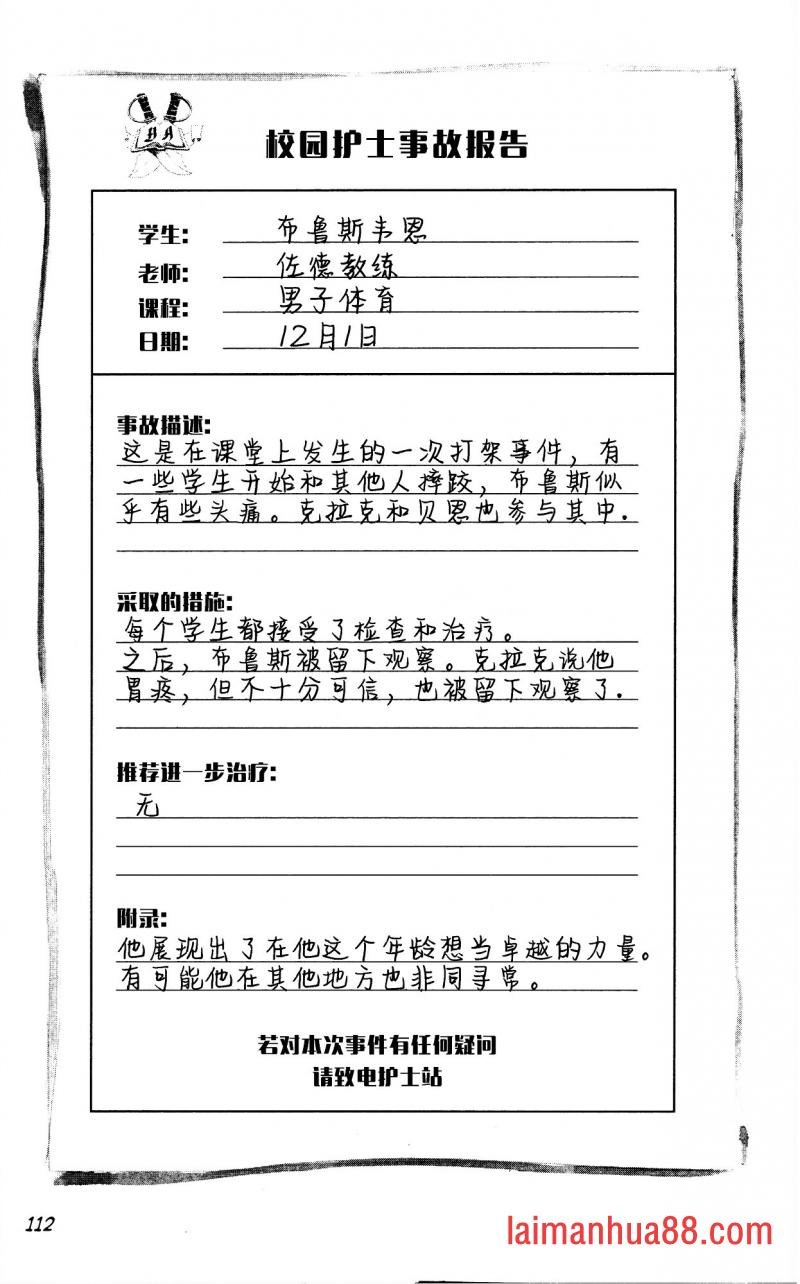 DA
校园护士事故报告
学生: 布鲁斯韦恩
老师: 佐德教练
课程: 男子体育
日期: 12月1日
事故描述:
这是在课堂上发生的一次打架事件，有
一些学生开始和其他人摔跤，布鲁斯似
乎有些头痛。克拉克和贝恩也参与其中.
采取的措施:
每个学生都接受了检查和治疗。
之后，布鲁斯被留下观察。克拉克说他
胃疼，但不十分可信，也被留下观察了.
推荐进一步治疗:
无
附录:
他展现出了在他这个年龄想当卓越的力量。
有可能他在其他地方也非同寻常。
若对本次事件有任何疑问
请致电护士站
112
laimanhua88.com